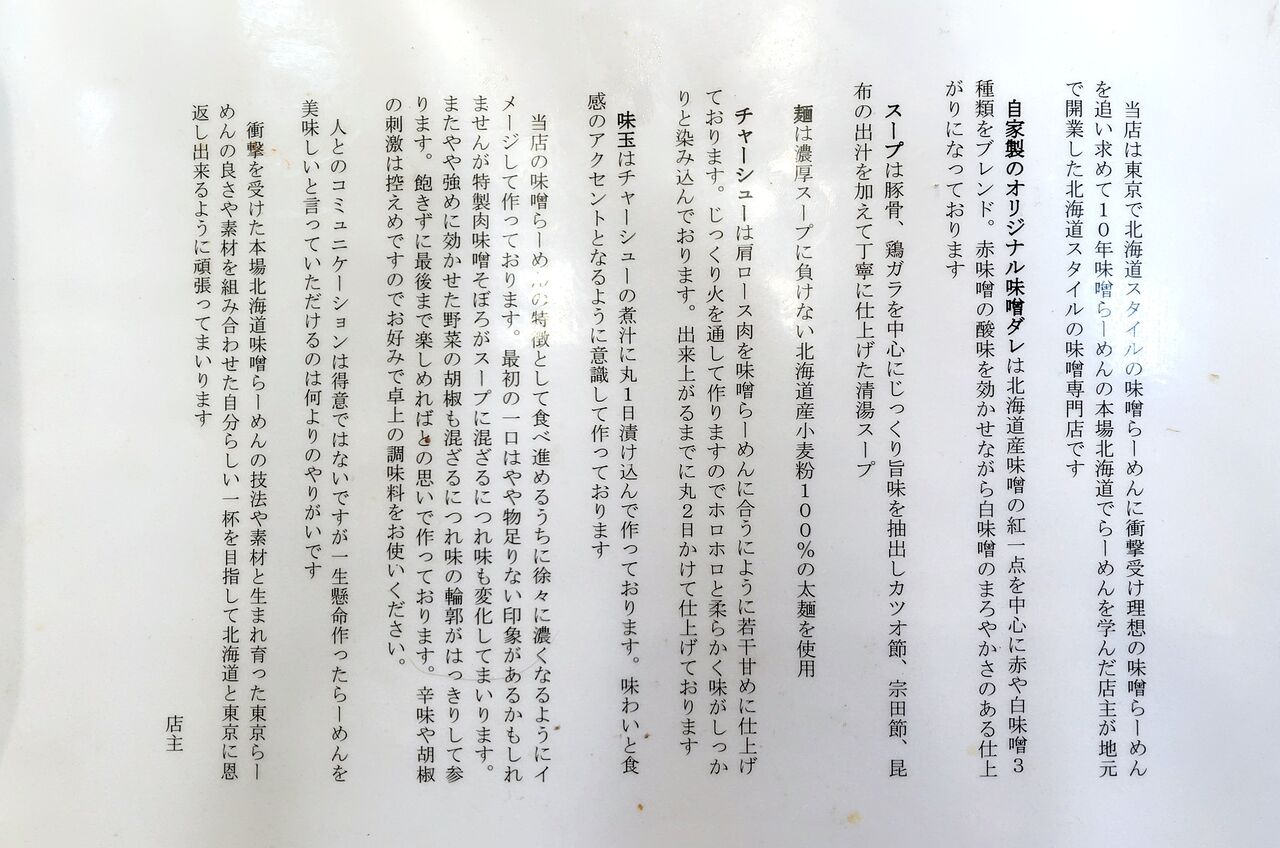 当店は東京で北海道スタイルの味噌らーめんに衝撃受け理想の味噌らーめん
を追い求めて10年味噌らーめんの本場北海道でらーめんを学んだ店主が地元
で開業した北海道スタイルの味噌専門店です
自家製のオリジナル味噌ダレは北海道産味噌の紅一点を中心に赤や白味噌3
種類をブレンド。赤味噌の酸味を効かせながら白味噌のまろやかさのある仕上
がりになっております
スープは豚骨、鶏ガラを中心にじっくり旨味を抽出しカツオ節、宗田節、昆
布の出汁を加えて丁寧に仕上げた清湯スープ
麺は濃厚スープに負けない北海道産小麦粉100%の太麺を使用
チャーシューは肩ロース肉を味噌らーめんに合うにように若干甘めに仕上げ
ております。じっくり火を通して作りますのでホロホロと柔らかく味がしっか
りと染み込んでおります。出来上がるまでに丸2日かけて仕上げております
味玉はチャーシューの煮汁に丸1日漬け込んで作っております。味わいと食
感のアクセントとなるように意識して作っております
当店の味噌らーめんの特徴として食べ進めるうちに徐々に濃くなるようにイ
メージして作っております。最初の一口はやや物足りない印象があるかもしれ
ませんが特製肉味噌そぼろがスープに混ざるにつれ味も変化してまいります。
またやや強めに効かせた野菜の胡椒も混ざるにつれ味の輪郭がはっきりして参
ります。飽きずに最後まで楽しめればとの思いで作っております。辛味や胡椒
の刺激は控えめですのでお好みで卓上の調味料をお使いください。
人とのコミュニケーションは得意ではないですが一生懸命作ったらーめんを
美味しいと言っていただけるのは何よりのやりがいです
衝撃を受けた本場北海道味噌らーめんの技法や素材と生まれ育った東京らー
めんの良さや素材を組み合わせた自分らしい一杯を目指して北海道と東京に恩
返し出来るように頑張ってまいります
店主